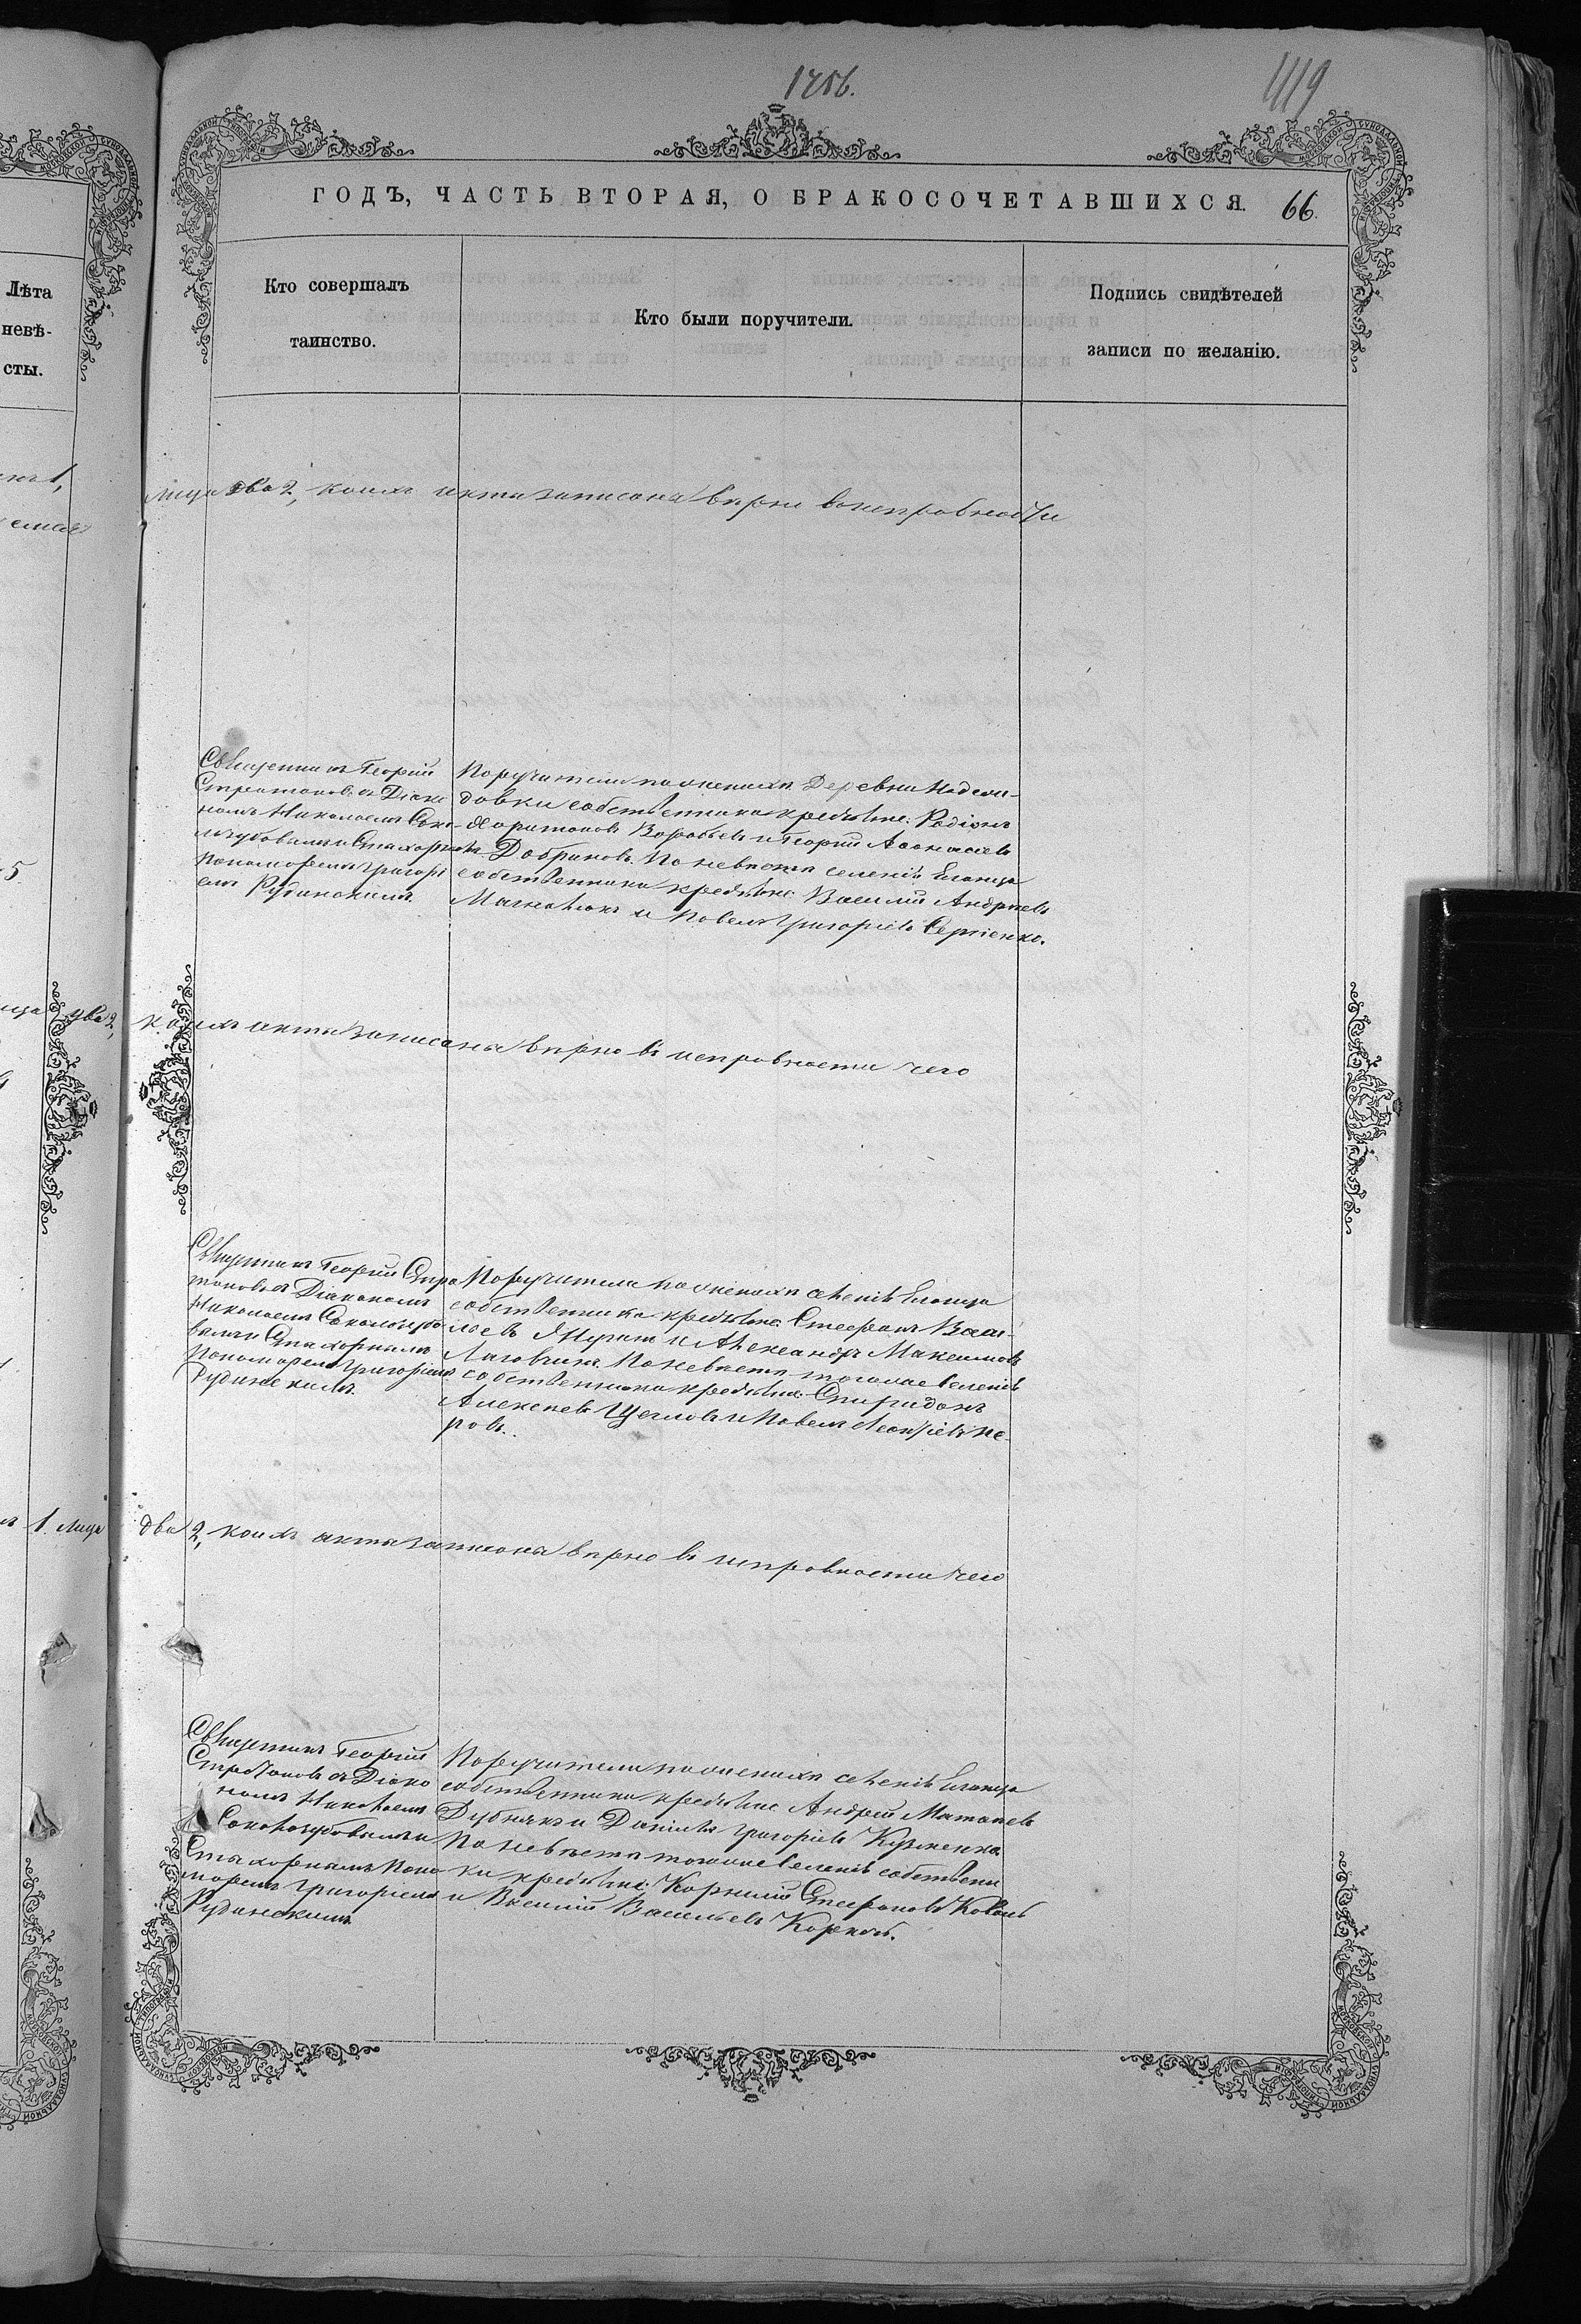 1256.
419
ГОДЪ, ЧАСТЬ ВТОРАЯ, О БРАКОСОЧЕТАВШИХСЯ. 66.
Лѣта
невѣ-
сты.
Кто совершалъ
таинство.
Кто были поручители.
Подпись свидѣтелей
записи по желанію.
лица два 2, коихъ акты записаны вѣрно въ исправности
Священникъ Георгій
Стратоновъ съ Діако
номъ Николаемъ Соко-
лозубовымъ и Стихарнымъ
пономаремъ Григорі
емъ Рудинскимъ.
Поручители по женихѣ Деревни
довки собственники крестьяне: Родіонъ
Харитоновъ Воробьевъ и Георгій Аѳонасіевъ
Добриновъ. По невѣстѣ селенія Еланца
собственники крестьяне Василій Андреевъ
и Павелъ Григорьевъ Сергіенко.
лица два 2,
коихъ акты записаны вѣрно въ исправности чего
Священникъ Георгій Стра
тоновъ съ Діакономъ
Николаемъ Соколозубо
вымъ и Стихарнымъ
пономаремъ Григоріемъ
Рудинскимъ.
Поручители по женихѣ селенія Еланца
собственники крестьяне: Стефанъ Васи-
льевъ и Александръ Максимовъ
По невѣстѣ тогоже селенія
собственники крестьяне: Спиридонъ
Алексеевъ Щегловъ и Павелъ Леонтіевъ Пе-
ровъ.
1. лица
два 2, коихъ акты записаны вѣрно въ исправности чего
Священникъ Георгій
Стратоновъ съ Діако
номъ Николаемъ
Соколозубовымъ и
Стихарнымъ Поно
маремъ Григоріемъ
Рудинскимъ
Поручители по женихѣ селенія Еланца
собственники крестьяне Андрей Матвѣевъ
Дубнякъ и Даніилъ Григорьевъ Кузменко.
По невѣстѣ тогоже селенія собствени
ки крестьяне: Корнилій Стефановъ Коваль
и Василій Васильевъ